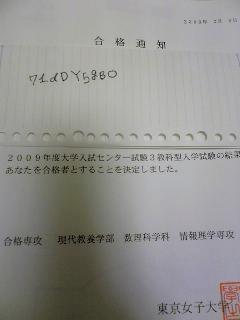 合格通知
71dDY5gBO
2009年度大学入試センター試験3教科型入学試験の結果
あなたを合格者とすることを決定しました。
合格専攻 現代教養学部 数理科学科 情報理学専攻
東京女子大学